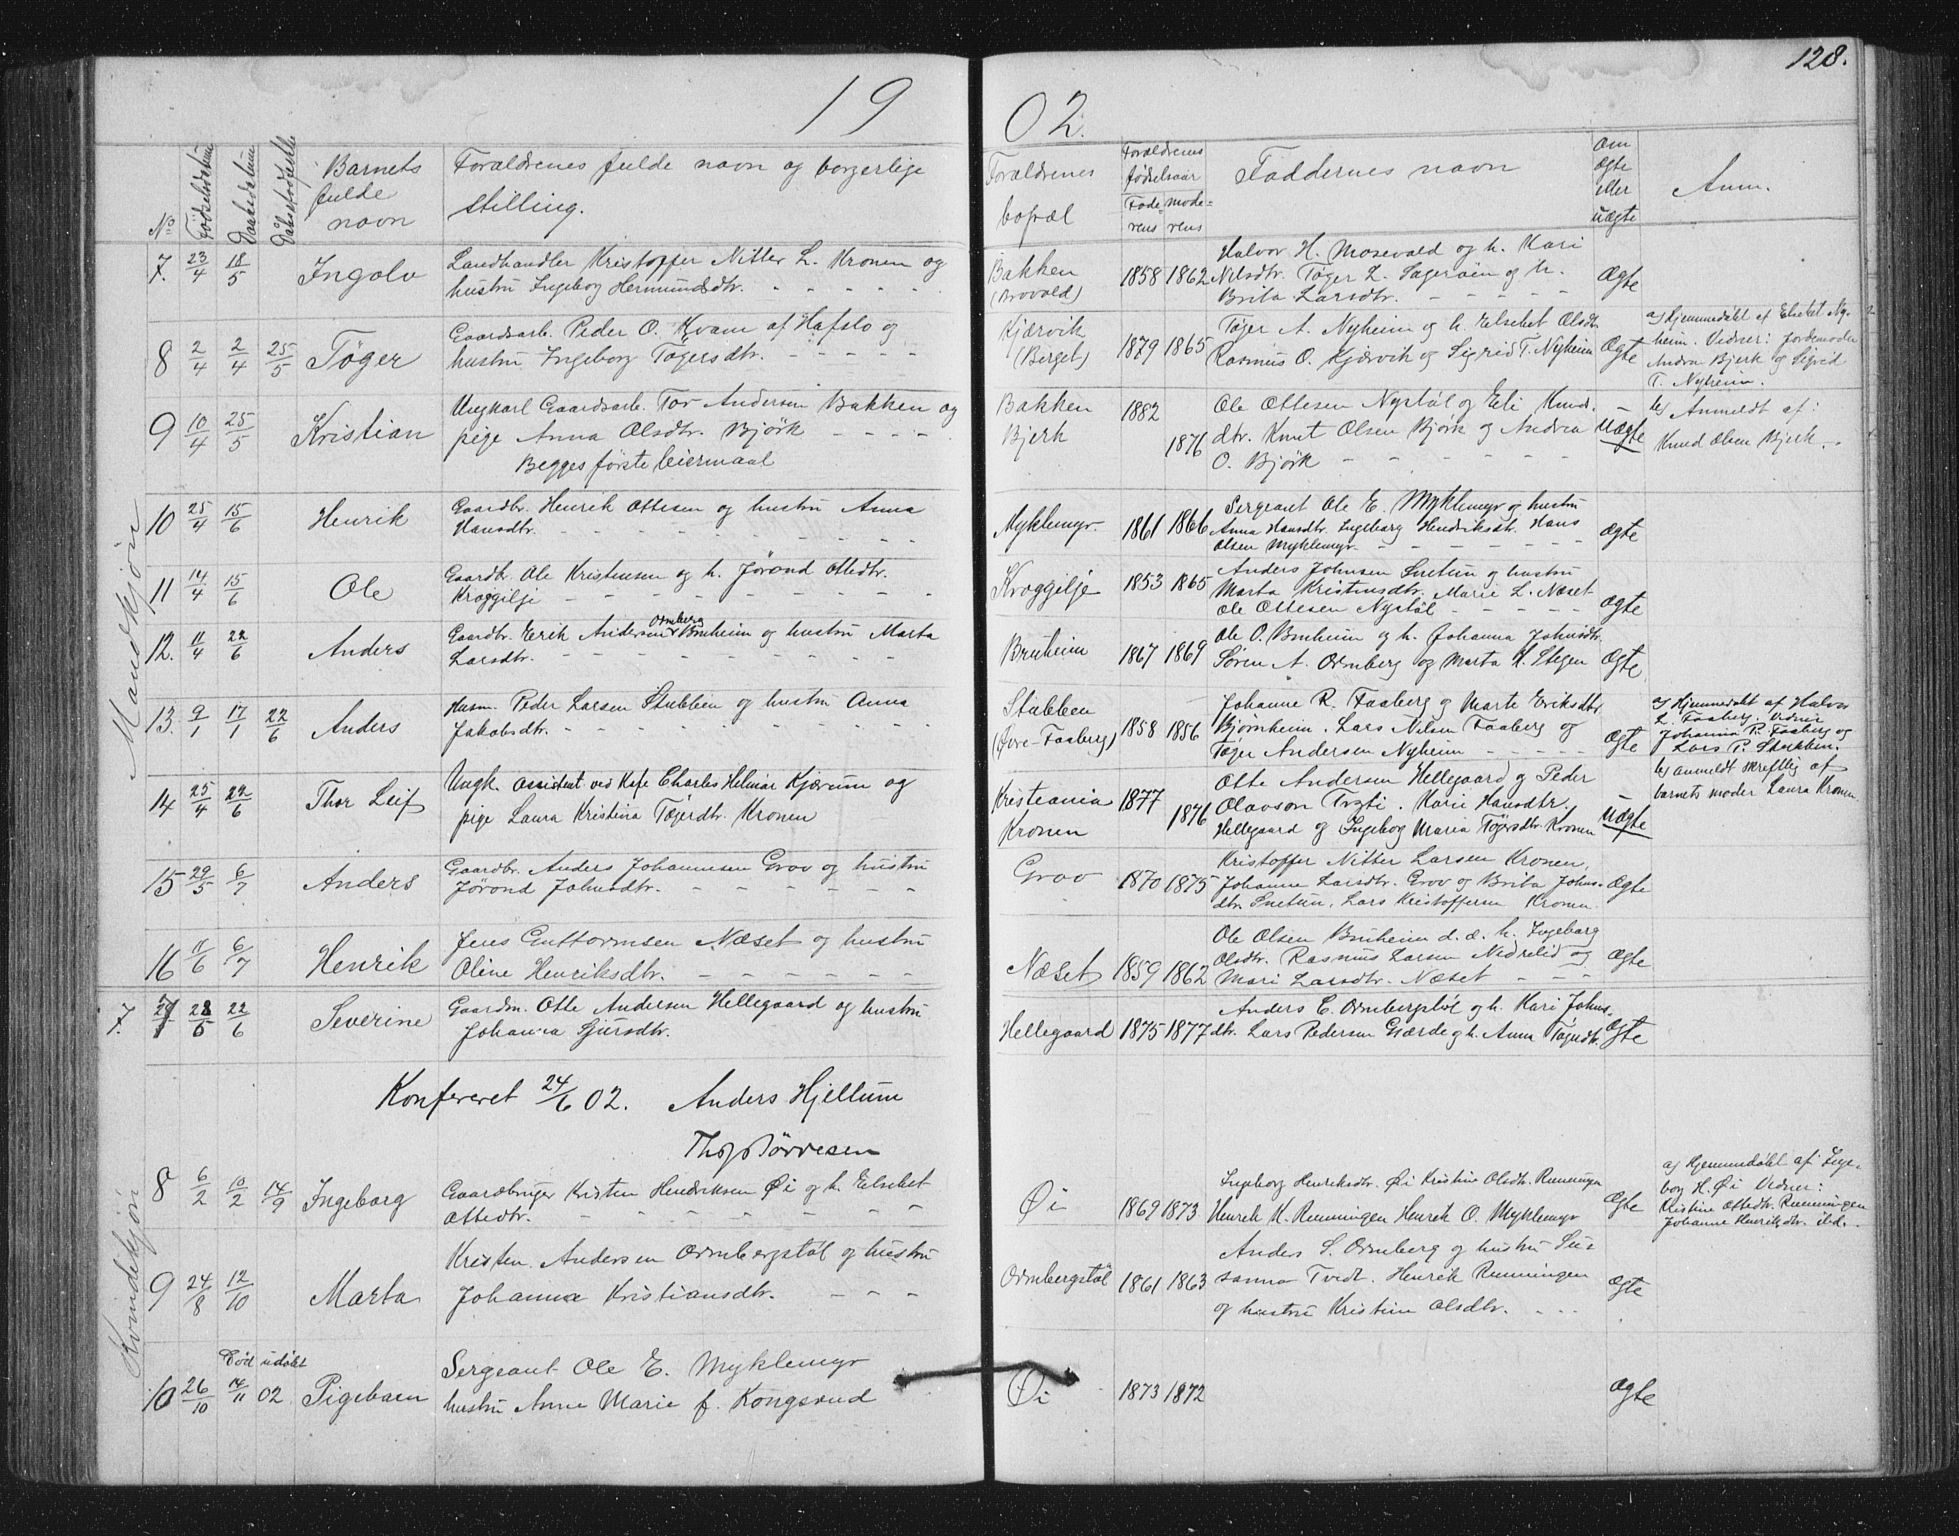 19
02.
128.
No
Fødselsdatum
Daabsdatum
Daabstodfestelse
Barnets
fulde
navn
Forældrenes fulde navn og borgerlige
stilling.
Forældrenes
bopæl
Forældrenes
fødselsaar
Fade-
rens
mode-
rens
Faddernes navn
Om
ægte
eller
uægte
Anm.
Mandkjøn
7. 23/4 18/5 Ingolv
Landhandler Kristoffer Nitter L. Kronen og
hustru Ingeborg Hermundsdtr.
Bakken
(Brovold)
1858 1862
Halvor H. Mosevold og h. Kari
Nilsdtr. Tøger L. Sagerøien og h.
Brita Larsdtr.
Ægte
8 2/4 2/4 25/5 Tøger
Gaardsarb. Peder O. Kvam af Hafslo og
hustru Ingeborg Tøgersdtr.
Kjærvik
(Berget)
1879 1865
Tøger A. Nyheim og h. Elsebet Olsdtr.
Rasmus O. Kjærvik og Sigrid T. Nyheim
Ægte
a) Hjemmedøbt af Elsebet Ny-
heim. Vidner: Jordemoder
Andrea Bjerk og Sigrid
T. Nyheim.
9 10/4 25/5 Kristian
Ungkarl Gaardsarb. Tor Andersen Bakken og
pige Anna Olsdtr. Bjørk
Begges første leiermaal
Bakken
Bjerk
1882
1876
Ole Ottesen Nystøl og Eli Knuds-
dtr. Knut Olsen Bjørk og Andrea
O. Bjørk
Uægte
b) Anmeldt af:
Knud Olsen Bjerk.
10 25/4 15/6 Henrik
Gaardbr. Henrik Ottesen og hustru Anna
Hansdtr.
Myklemyr
1861 1866
Sergeant Ole E. Myklemyr og hustru
Anna Hansdtr. Ingeborg Hendriksdtr. Hans
Olsen Myklemyr.
Ægte
11 14/4 15/6 Ole
Gaardbr. Ole Kristensen og h. Jørond Ottedtr.
Kroggilje
Kroggilje
1853 1865
Anders Johnsen Snetun og hustru
Marta Kristensdtr. Marie L. Næset
Ole Ottesen Nystøl
Ægte
12. 11/4 22/6 Anders
Ormberg
Gaardbr. Erik Andersen Bruheim og hustru Marta
Larsdtr.
Bruheim
1867 1869
Ole O. Bruheim og h. Johanna Johnsdtr.
Søren A. Ormberg og Marta L. Stegen
Ægte
13. 9/1 17/1 22/6 Anders
Husm. Peder Larsen Stubben og hustru Anna
Jakobsdtr.
Stubben
(Øvre-Faaberg)
1858 1856
Johanne R. Faaberg og Marte Eriksdtr.
Bjørnheim. Lars Nilsen Faaberg og
Tøger Andersen Nyheim
Ægte
a) Hjemmedøbt af Halvor
L. Faaberg. Vidner
Johanna P. Faaberg og
Lars P. Stubben.
14 25/4 22/6 Thor Leif
Ungk. Assistent ved Kafe Charles Helmar Kjærum og
pige Laura Kristina Tøgerdtr. Kronen
Kristiania
Kronen
1877
1876
Otte Andersen Hellegaard og Peder
Olavson Trzti. Marie Hansdtr.
Hellegaard og Ingeborg Maria Tøgersdtr. Kronen
Uægte
b) Anmeldt skreftlig af
barnets moder Laura Kronen.
15 29/5 6/7 Anders
Gaardbr. Anders Johannesen Grov og hustru
Jørond Johnsdtr.
Grov
1870 1875
Kristoffer Nitter Larsen Kronen,
Johanne Larsdtr. Grov og Brita Johns-
dtr. Snetun, Lars Kristoffersen Kronen.
Ægte
16 11/6 6/7 Henrik
Jens Guttormsen Næset og hustru
Oline Henriksdtr.
Næset
1859 1862
Ole Olsen Bruheim d. æ. h. Ingeborg
Olsdtr. Rasmus Larsen Nedrelid og
Mari Larsdtr. Næset
Ægte
7. 28/5 22/6 Severine
Gaardm. Otte Andersen Hellegaard og hustru
Johanna Sjursdtr.
Hellegaard
1875 1877
Anders E. Ormbergstøl og h. Kari Johns-
dtr. Lars Pedersen Gjærde og h. Anna Tøgerdtr.
Ægte
Konfereret 24/6 02. Anders Hjellum
Thos Tørresen
Kvindekjøn
8 6/2 10/2 14/9 Ingeborg
Gaardbruger Kristen Hendriksen Øi og h. Elsebet
Ottedtr.
Øi
1869 1873
Ingeborg Henriksdtr. Øi Kristine Olsdtr. Rønningen
Henrik K. Rønningen Henrik O. Myklemyr
Ægte
a) Hjemmedøbt af Inge-
borg H. Øi Vidner:
Kristine Ottedtr. Rønningen
Johanne Henriksdtr. ibd.
9 24/8 12/10 Marta
Kristen Andersen Ormbergstøl og hustru
Johanna Kristiansdtr.
Ormbergstøl
1861 1863
Anders S. Ormberg og hustru Su-
sanna Tvedt. Henrik Rønningen
og hustru Kristine Olsdtr.
Ægte
Død udøbt
10 26/10 14/11 02 Pigebarn
Sergeant Ole E. Myklemyr
hustru Anne Marie f. Kongsrud
Øi
1873 1872
Ægte